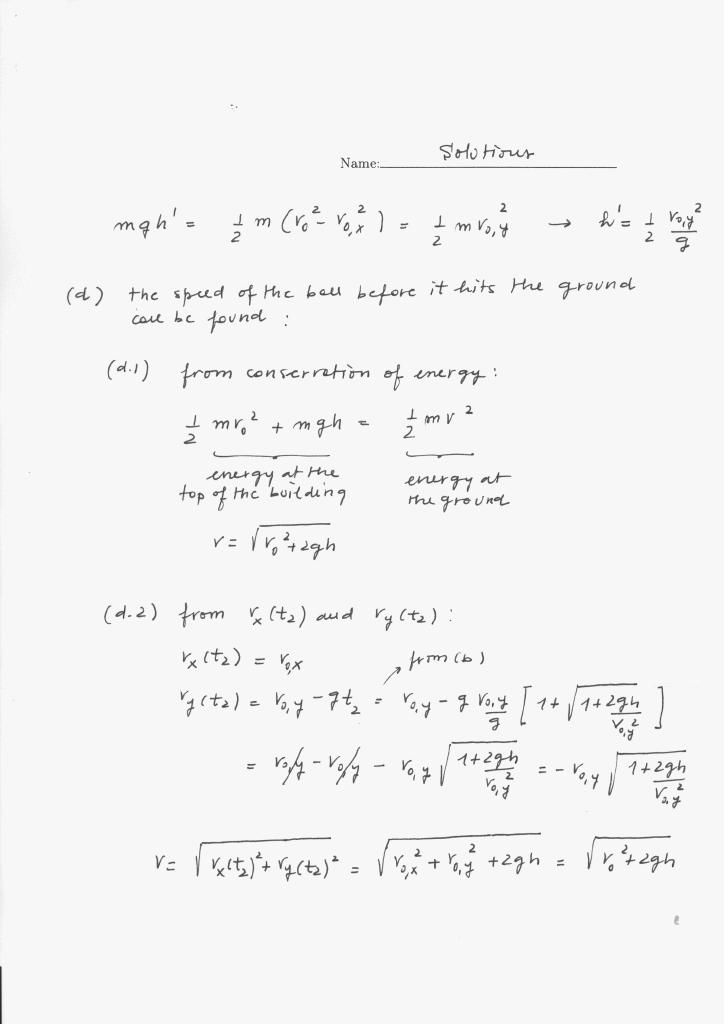 Name: Solutions
mgh' = 1/2 m (v₀² - v₀,ₓ²) = 1/2 m v₀,y² → h' = 1/2 v₀,y²/g
(d) the speed of the ball before it hits the ground
can be found :
(d.1) from conservation of energy :
1/2 mv₀² + mgh = 1/2 mv²
energy at the energy at
top of the building the ground
v = √(v₀² + 2gh)
(d.2) from vₓ(t₂) and v_y(t₂) :
vₓ(t₂) = v₀,ₓ from (b)
v_y(t₂) = v₀,y - gt₂ = v₀,y - g v₀,y/g [1 + √(1 + 2gh/v₀,y²)]
= v₀,y - v₀,y - v₀,y √(1 + 2gh/v₀,y²) = - v₀,y √(1 + 2gh/v₀,y²)
v = √(vₓ(t₂)² + v_y(t₂)²) = √(v₀,ₓ² + v₀,y² + 2gh) = √(v₀² + 2gh)